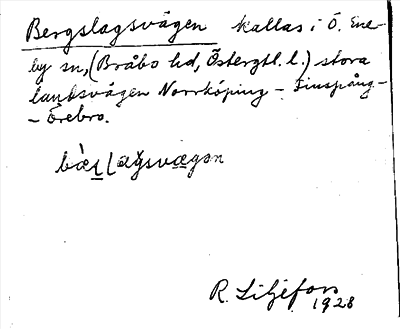 Bergslagsvägen kallas i Ö. Ene-
by sn, (Bråbo hd, Östergtl. l.) stora
landsvägen Norrköping - Finspång -
- Örebro.
R. Liljefors
1928